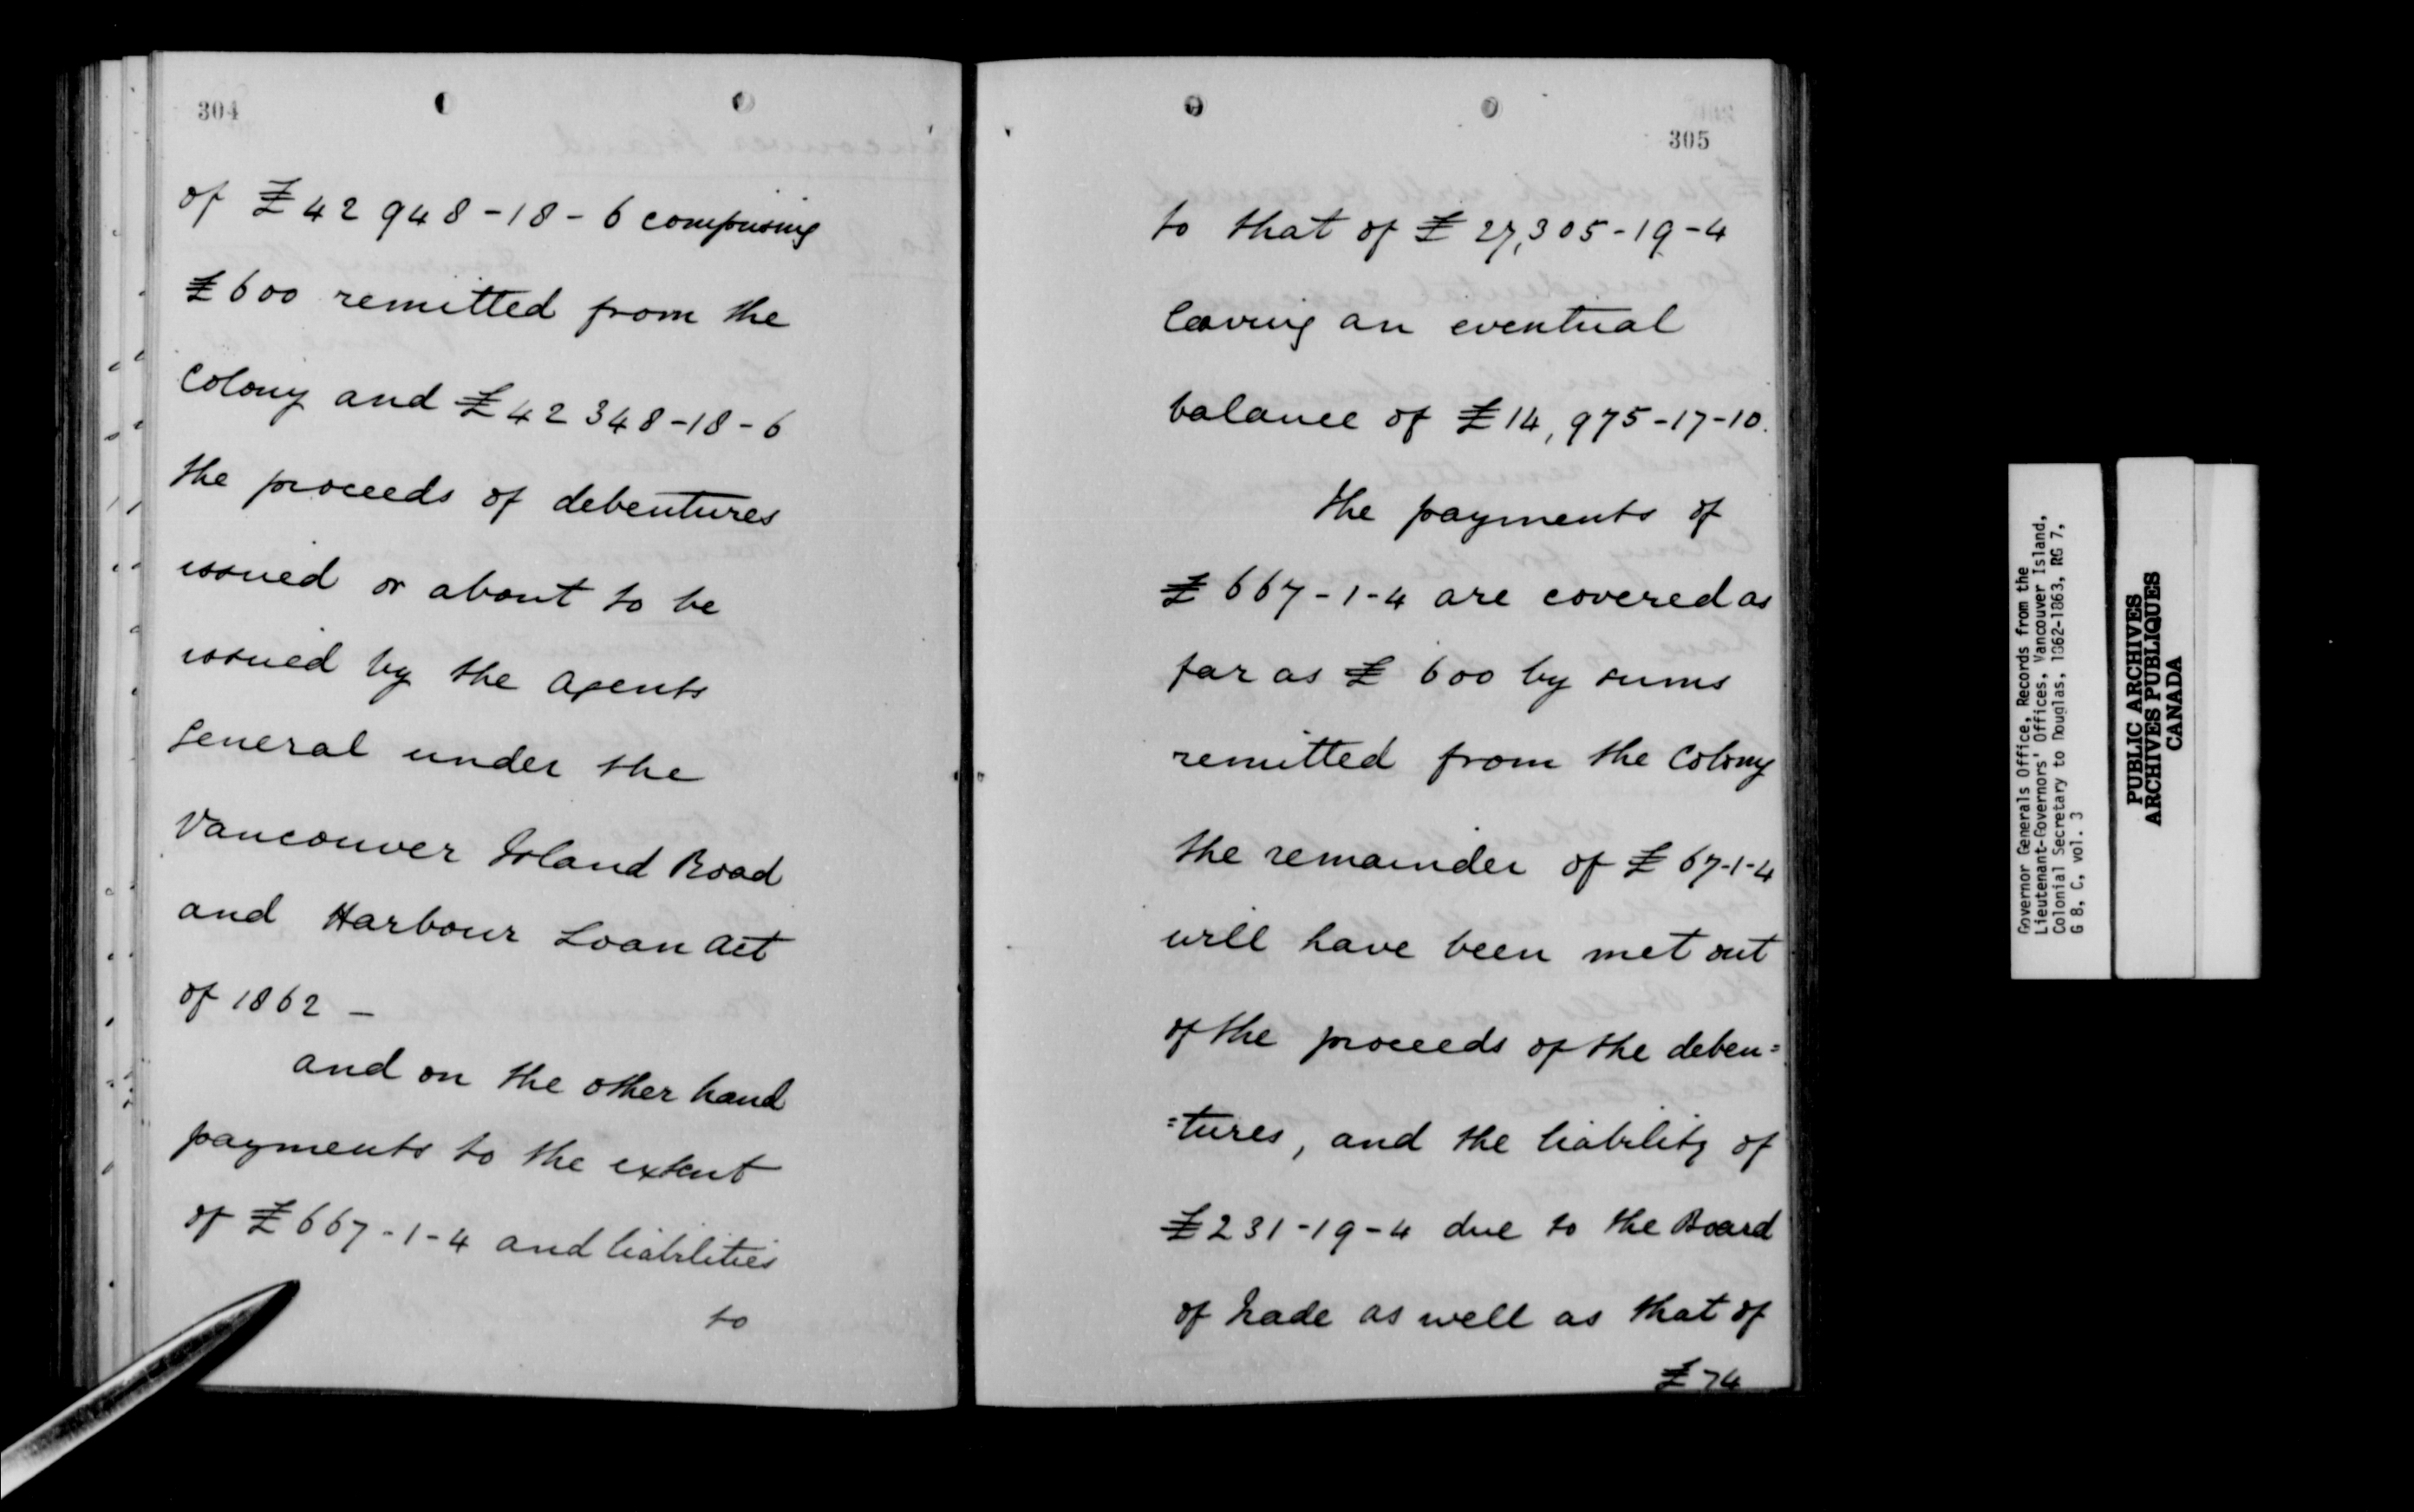 304
of £42 948-18-6 comprising
£600 remitted from the
Colony and £42 348-18-6
the proceeds of debentures
issued or about to be
issued by the Agents
General under the
Vancouver Island Road
and Harbour Loan Act
of 1862 —
and on the other hand
payments to the extent
of £667-1-4 and liabilities
to
305
to that of £27,305-19-4
leaving an eventual
balance of £14,975-17-10.
The payments of
£667-1-4 are covered as
far as £600 by sums
remitted from the Colony
the remainder of £67-1-4
will have been met out
of the proceeds of the deben=
=tures, and the liability of
£231-19-4 due to the Board
of Trade as well as that of
£74
Governor Generals Office, Records from the
Lieutenant-Governors' Offices, Vancouver Island,
Colonial Secretary to Douglas, 1862-1863, RG 7,
G 8, C, vol. 3
PUBLIC ARCHIVES
ARCHIVES PUBLIQUES
CANADA